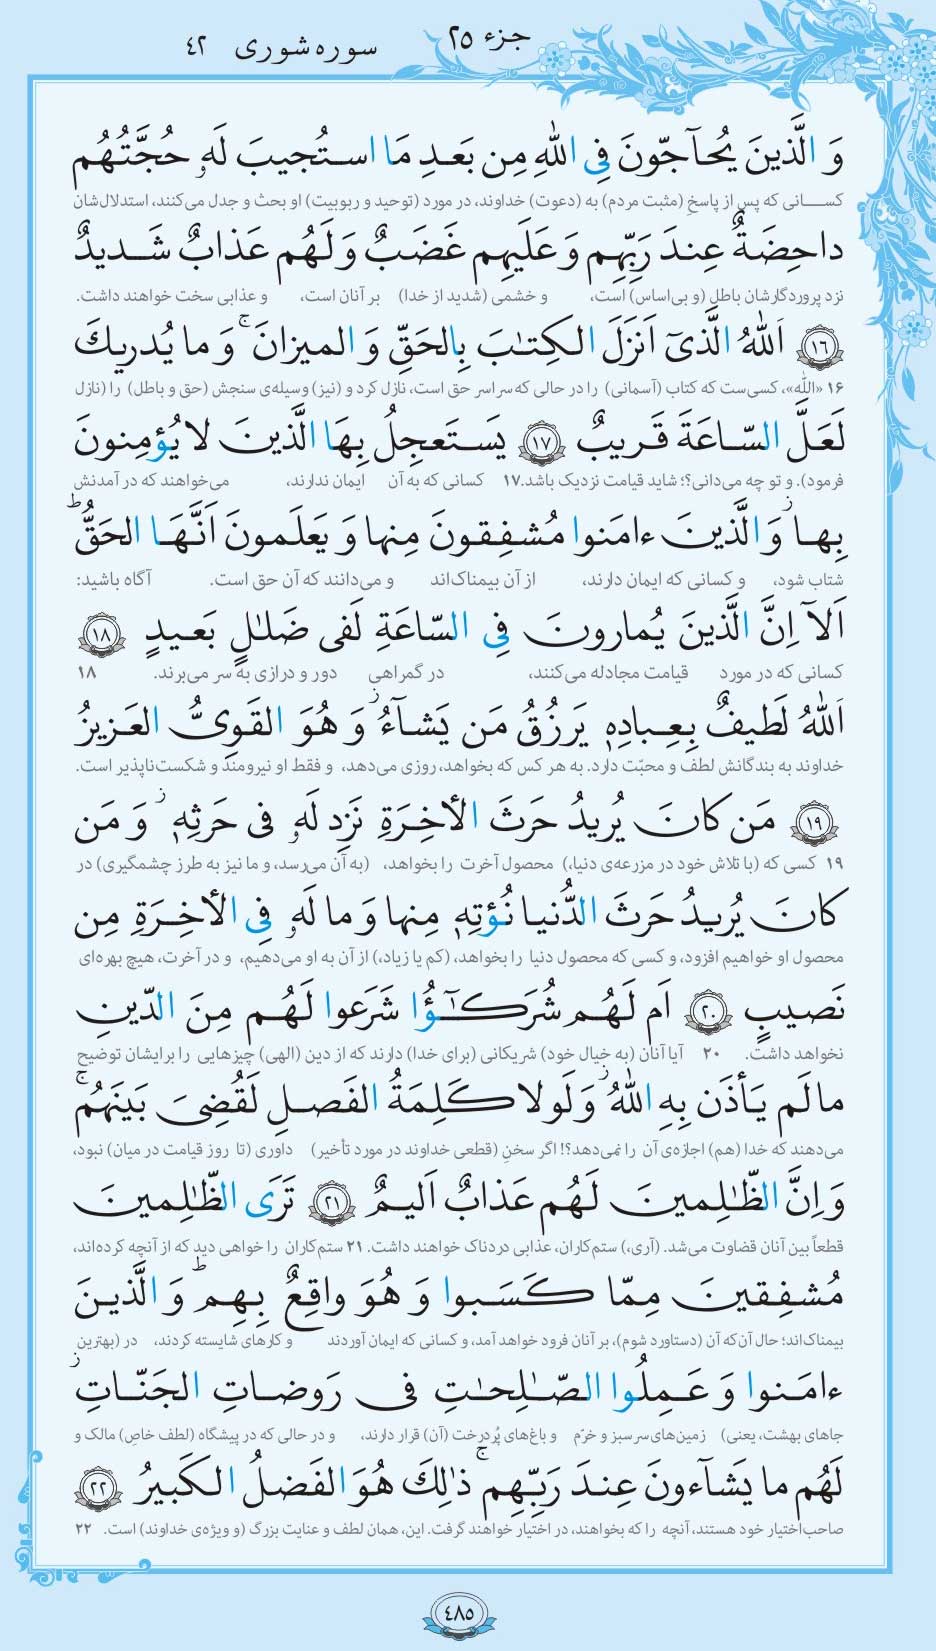 جزء ۲۵
سوره شوری ۴۲
وَ الَّذینَ یُحآجّونَ فِی اللهِ مِن بَعدِ مَا استُجیبَ لَهٗ حُجَّتُهُم
کسانی که پس از پاسخِ (مثبت مردم) به (دعوت) خداوند، در مورد (توحید و ربوبیت) او بحث و جدل می‌کنند، استدلال‌شان
داحِضَةٌ عِندَ رَبِّهِم وَ عَلَیهِم غَضَبٌ وَ لَهُم عَذابٌ شَدیدٌ
نزد پروردگارشان باطل (و بی‌اساس) است، و خشمی (شدید از خدا) بر آنان است، و عذابی سخت خواهند داشت.
﴿۱۶﴾ اَللهُ الَّذیٓ اَنزَلَ الکِتٰبَ بِالحَقِّ وَ المیزانَ ۚ وَ ما یُدریكَ
۱۶ «الله»، کسی‌ست که کتاب (آسمانی) را در حالی که سراسر حق است، نازل کرد و (نیز) وسیله‌ی سنجش (حق و باطل) را (نازل
لَعَلَّ السّاعَةَ قَریبٌ ﴿۱۷﴾ یَستَعجِلُ بِهَا الَّذینَ لا یُؤمِنونَ
فرمود). و تو چه می‌دانی؟؛ شاید قیامت نزدیک باشد.۱۷ کسانی که به آن ایمان ندارند، می‌خواهند که در آمدنش
بِها ز وَ الَّذینَ ءامَنوا مُشفِقونَ مِنها وَ یَعلَمونَ اَنَّهَا الحَقُّ ط
شتاب شود، و کسانی که ایمان دارند، از آن بیمناک‌اند و می‌دانند که آن حق است. آگاه باشید:
اَلآ اِنَّ الَّذینَ یُمارونَ فِی السّاعَةِ لَفی ضَلٰلٍ بَعیدٍ ﴿۱۸﴾
کسانی که در مورد قیامت مجادله می‌کنند، در گمراهی دور و درازی به سر می‌برند. ۱۸
اَللهُ لَطیفٌ بِعِبادِهٖ یَرزُقُ مَن یَشآءُ ز وَ هُوَ القَوِیُّ العَزیزُ
خداوند به بندگانش لطف و محبّت دارد. به هر کس که بخواهد، روزی می‌دهد، و فقط او نیرومند و شکست‌ناپذیر است.
﴿۱۹﴾ مَن کانَ یُریدُ حَرثَ الأخِرَةِ نَزِد لَهٗ فی حَرثِهٖ ز وَ مَن
۱۹ کسی که (با تلاش خود در مزرعه‌ی دنیا،) محصول آخرت را بخواهد، (به آن می‌رسد، و ما نیز به طرز چشمگیری) در
کانَ یُریدُ حَرثَ الدُّنیا نُؤتِهٖ مِنها وَ ما لَهٗ فِی الأخِرَةِ مِن
محصول او خواهیم افزود، و کسی که محصول دنیا را بخواهد، (کم یا زیاد،) از آن به او می‌دهیم، و در آخرت، هیچ بهره‌ای
نَصیبٍ ﴿۲۰﴾ اَم لَهُم شُرَکٰٓؤُا شَرَعوا لَهُم مِنَ الدّینِ
نخواهد داشت. ۲۰ آیا آنان (به خیال خود) شریکانی (برای خدا) دارند که از دین (الهی) چیزهایی را برایشان توضیح
ما لَم یَأذَن بِهِ اللهُ ز وَ لَولا کَلِمَةُ الفَصلِ لَقُضِیَ بَینَهُم ۚ
می‌دهند که خدا (هم) اجازه‌ی آن را نمی‌دهد؟! اگر سخنِ (قطعی خداوند در مورد تأخیر) داوری (تا روز قیامت در میان) نبود،
وَ اِنَّ الظّٰلِمینَ لَهُم عَذابٌ اَلیمٌ ﴿۲۱﴾ تَرَی الظّٰلِمینَ
قطعاً بین آنان قضاوت می‌شد. (آری،) ستم‌کاران، عذابی دردناک خواهند داشت. ۲۱ ستم‌کاران را خواهی دید که از آنچه کرده‌اند،
مُشفِقینَ مِمّا کَسَبوا وَ هُوَ واقِعٌ بِهِم ط وَ الَّذینَ
بیمناک‌اند؛ حال آن‌که آن (دستاورد شوم)، بر آنان فرود خواهد آمد، و کسانی که ایمان آوردند و کارهای شایسته کردند، در (بهترین
ءامَنوا وَ عَمِلُوا الصّٰلِحٰتِ فی رَوضاتِ الجَنّاتِ ز
جاهای بهشت، یعنی) زمین‌های سرسبز و خرّم و باغ‌های پُردرخت (آن) قرار دارند، و در حالی که در پیشگاه (لطف خاصِ) مالک و
لَهُم ما یَشآءونَ عِندَ رَبِّهِم ۚ ذٰلِكَ هُوَ الفَضلُ الکَبیرُ ﴿۲۲﴾
صاحب‌اختیار خود هستند، آنچه را که بخواهند، در اختیار خواهند گرفت. این، همان لطف و عنایت بزرگ (و ویژه‌ی خداوند) است. ۲۲
۴۸۵